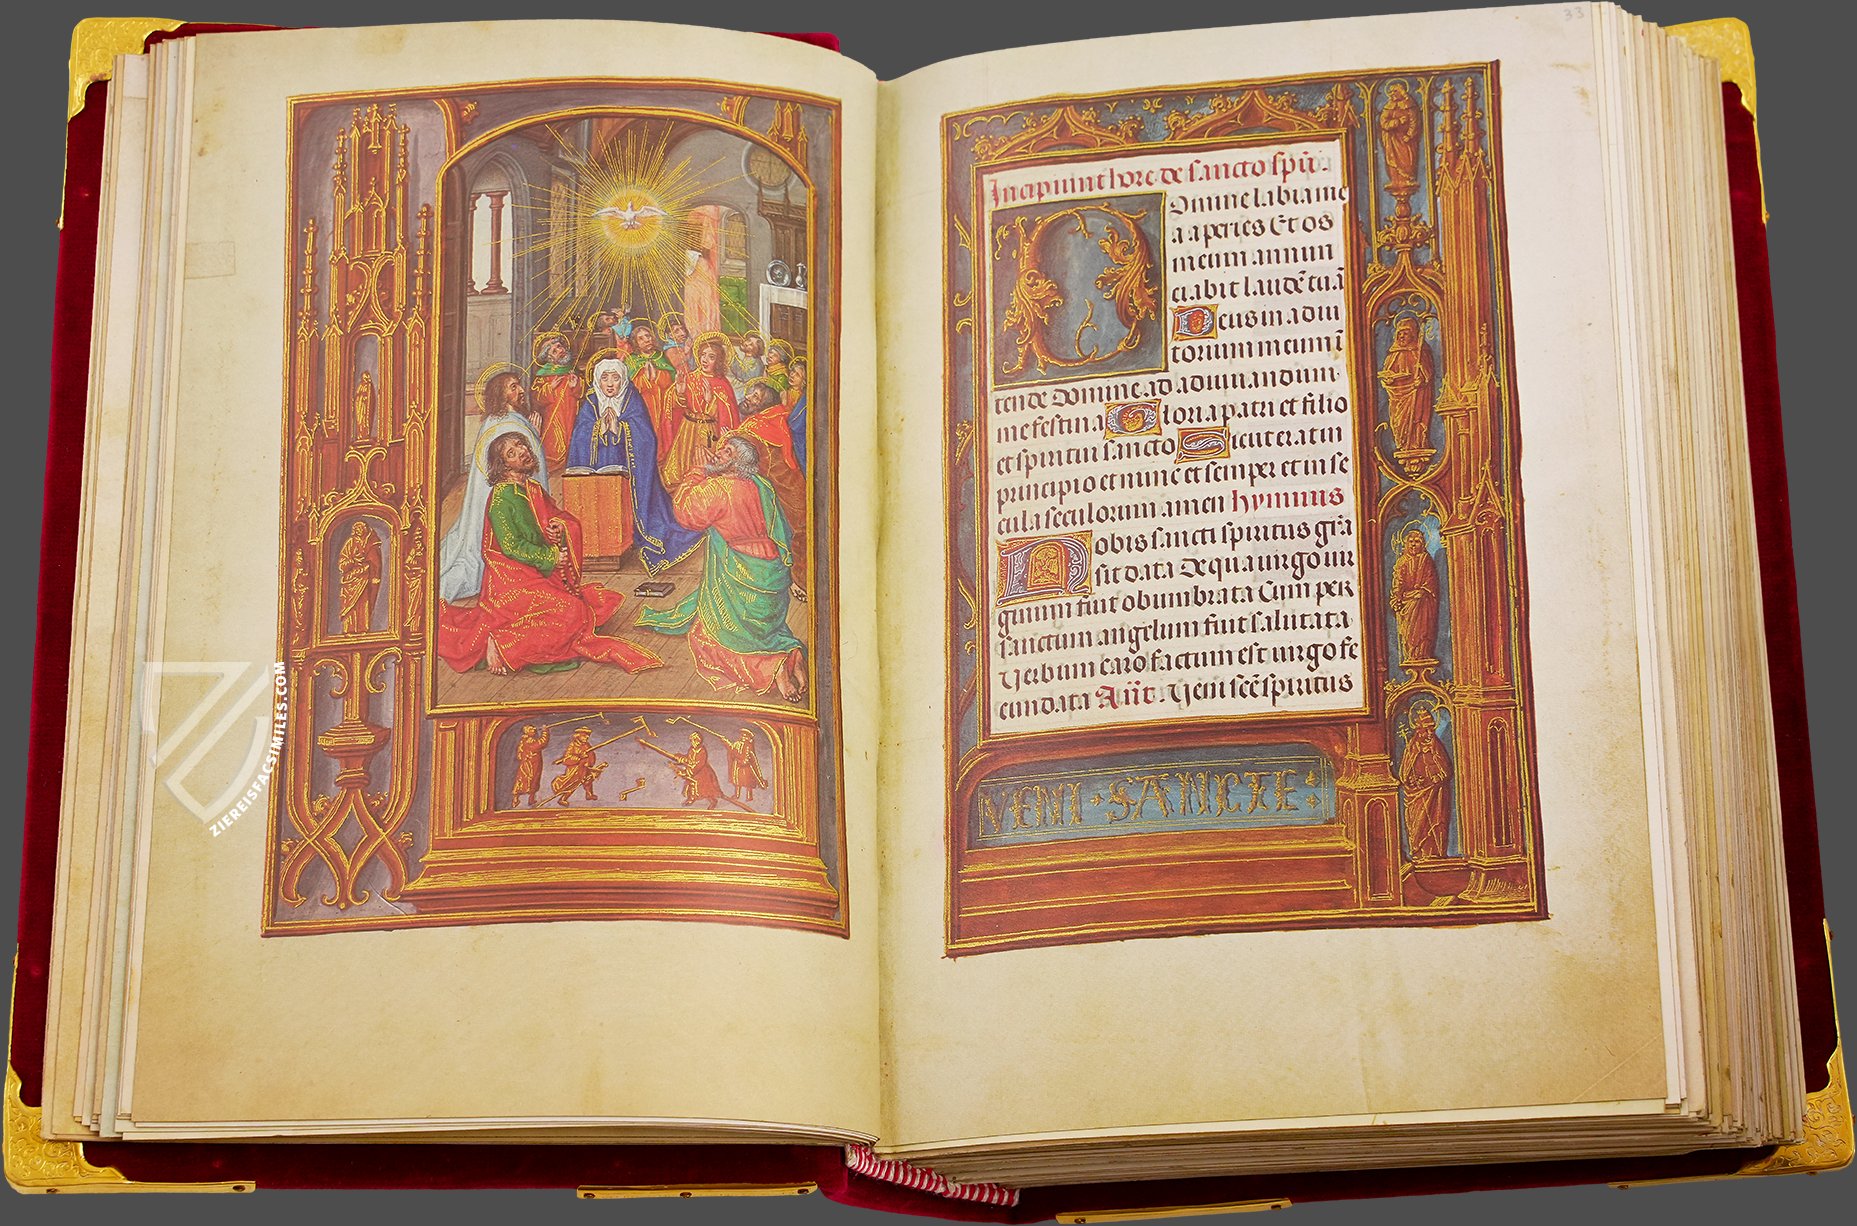 ZIEREISFACSIMILES.COM
33
Incipiunt hore de sancto spū.
Domine labia me
a aperies Et os
meum annun
ciabit laudē tuā
Deus in adiu
torium meum ī
tende Domine ad adiuuandum
me festina Gloria patri et filio
et spiritui sancto Sicut erat in
principio et nunc et semper et in se
cula seculorum amen hymnus
Nobis sancti spiritus grā
sit data De qua uirgo uir
ginum fuit obumbrata Cum per
sanctum angelum fuit salutata
Verbum caro factum est uirgo fe
cundata Añt. Veni scē spiritus
VENI · SANCTE